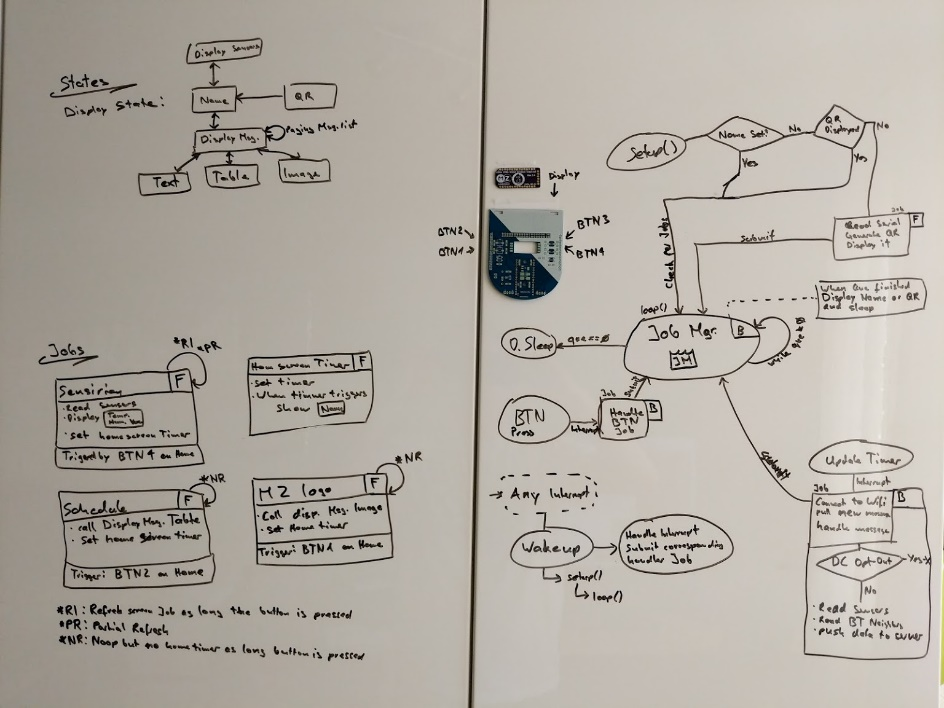 States
Display State:
Display Sensors
Name
QR
Display Msg.
Paging Msg. list
Text
Table
Image
Jobs
*RI *PR
Sensirion
F
· Read Sensors
· Display
· set homescreen Timer
Triggered by BTN4 on Home
Home screen Timer
F
· set timer
· When timmer triggers
show Name
*NR
Schedule
F
· call Display Msg. Table
· Set home screen timer
Trigger: BTN2 on Home
*NR
MZ logo
F
· Call disp. Msg. Image
· Set Home timer
Trigger: BTN1 on Home
*RI: Refresh screen Job as long the button is pressed
*PR: Partial Refresh
*NR: Noop but no home timer as long button is pressed
Display
BTN2
BTN1
BTN3
BTN4
Setup()
Name Set?
No
Yes
QR
Displayed
No
Yes
Job
F
Read Serial
Generate QR
Display it
Submit
Check for Jobs
When Que finished
Display Name or QR
and sleep
loop()
Job Mgr.
B
JM
While que ≠ Ø
que == Ø
D. Sleep
BTN
Press
Interrupt
Job
B
Handle
BTN
Job
Submit
Any Interrupt
Wakeup
Handle Interrupt
Submit corresponding
handler Job
setup()
loop()
Submit
Update Timer
Interrupt
Job
B
Connect to Wifi
pull new
handle message
DC Opt-Out
Yes
No
· Read Sensors
· Read BT Neighbors
· push data to server